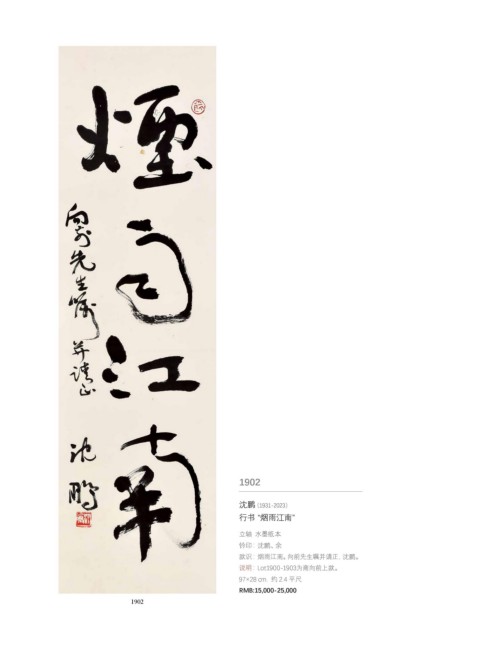 煙雨江南
向前先生嘱
并请正
沈鹏
1902
1902
沈鹏 (1931-2023)
行书 “烟雨江南”
立轴 水墨纸本
钤印：沈鹏、余
款识：烟雨江南。向前先生嘱并请正，沈鹏。
说明：Lot1900-1903为南向前上款。
97×28 cm. 约 2.4 平尺
RMB:15,000-25,000